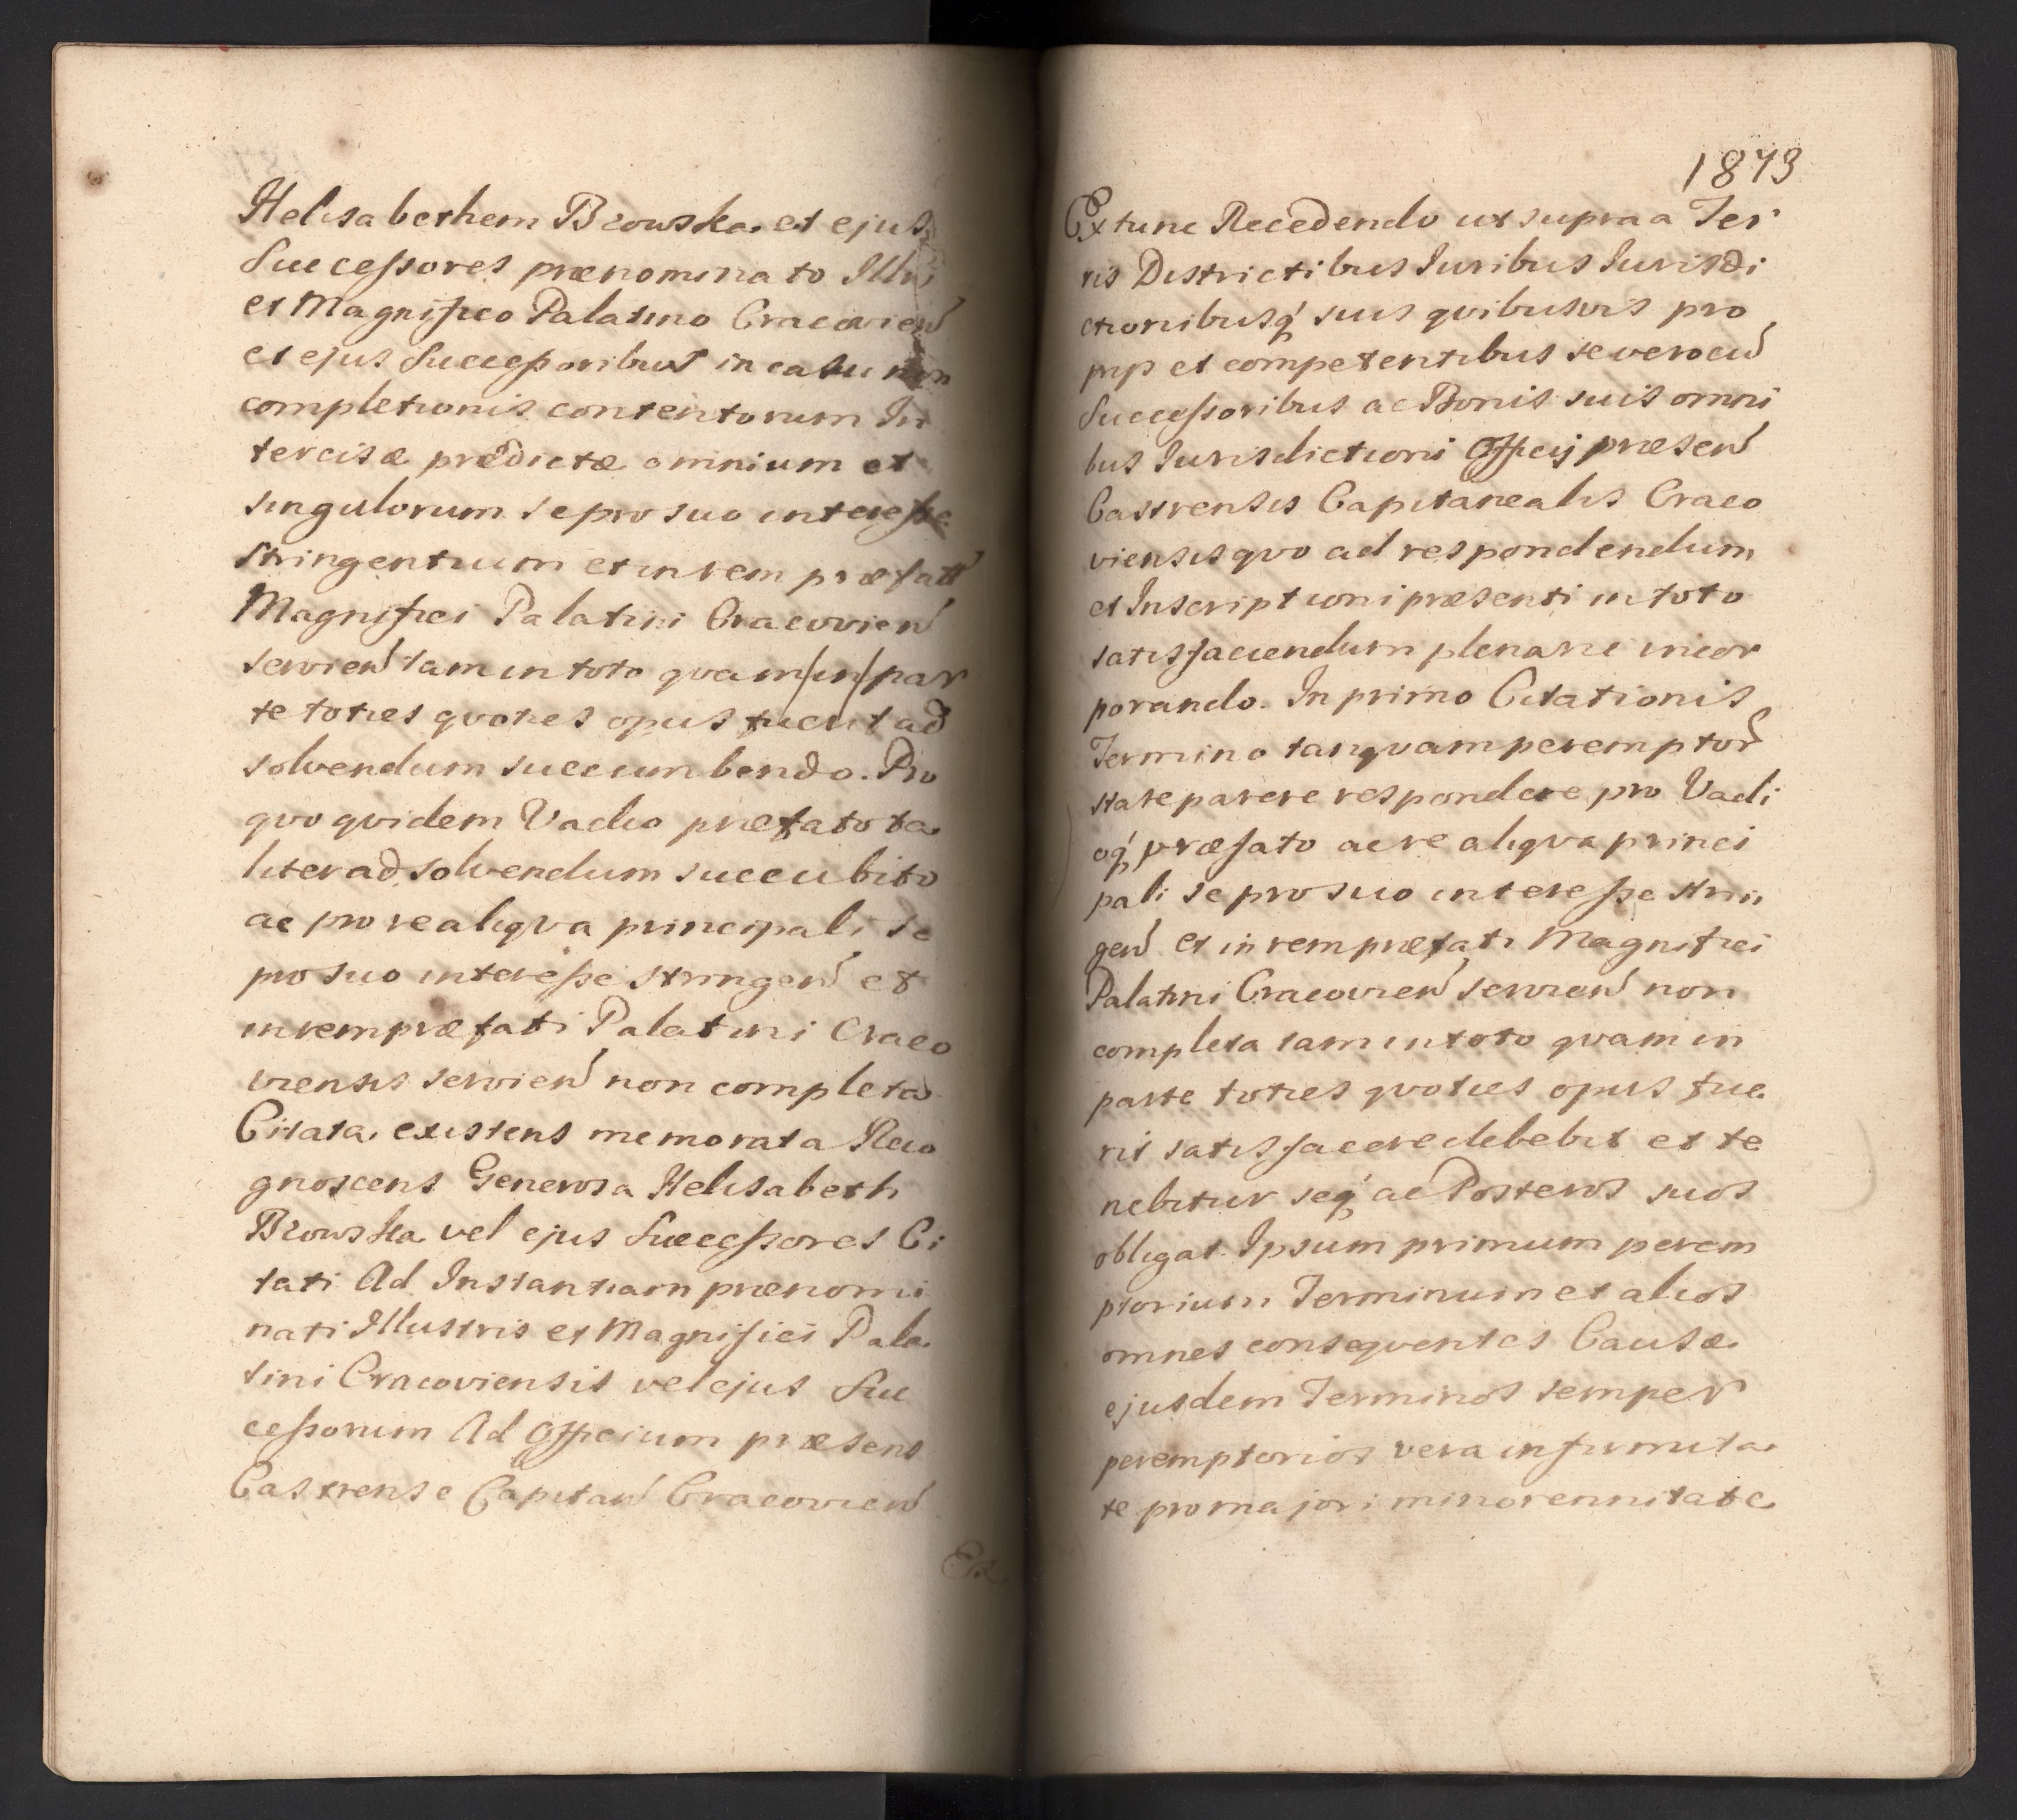 Helisabethem Bzowska et ejus
Successores prænominato Illri
et Magnifico Palatino Cracovien
et ejus Successoribus in casu non
completionis contentorum In
tercisæ prædictæ omnium et
singulorum se pro suo interesse
stringentium et in rem præfati
Magnifici Palatini Cracovien
servien tam in toto qvam /in/ par
te toties qvoties opus fuerit ad
solvendum succumbendo. Pro
qvo qvidem Vadio præfato ta
liter ad solvendum succubito
ac pro re aliqva principali se
pro suo interesse stringen et
in rem præfati Palatini Craco
viensis servien non completa
Citata existens memorata Reco
gnoscens Generosa Helisabeth
Bzowska vel ejus Successores Ci
tati Ad Instantiam prænomi
nati Illustris et Magnifici Pala
tini Cracoviensis vel ejus Suc
cessorum Ad Officium præsens
Castrense Capitan Cracovien
Ex
1873
Extunc Recedendo ut supra a Ter
ris Districtibus Iuribus Iurisdi
ctionibusq́ suis qvibusvis pro
prys et competentibus se vero cu
Successoribus ac Bonis suis omni
bus Iurisdictioni Officij præsen
Castrensis Capitanealis Craco
viensis qvo ad respondendum
et Inscriptioni præsenti in toto
satisfaciendum plenarie incor
porando. In primo Citationis
Termino tanqvam peremptor
stare parere respondere pro Vadi
oq́ præfato ac re aliqva princi
pali se pro suo interesse strin
gen et in rem præfati Magnifici
Palatini Cracovien servien non
completa tam in toto qvam in
parte toties qvoties opus fue
rit satisfacere debebit et te
nebitur seq́ ac Posteros suos
obligat. Ipsum primum perem
ptorium Terminum et alios
omnes conseqventes Causæ
ejusdem Terminos semper
peremptorios vera infirmita
te pro majori minorennitate